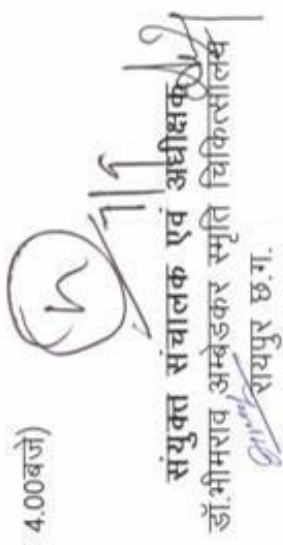 4.00बजे)
संयुक्त संचालक एवं अधीक्षक
डॉ.भीमराव अम्बेडकर स्मृति चिकित्सालय
रायपुर छ.ग.